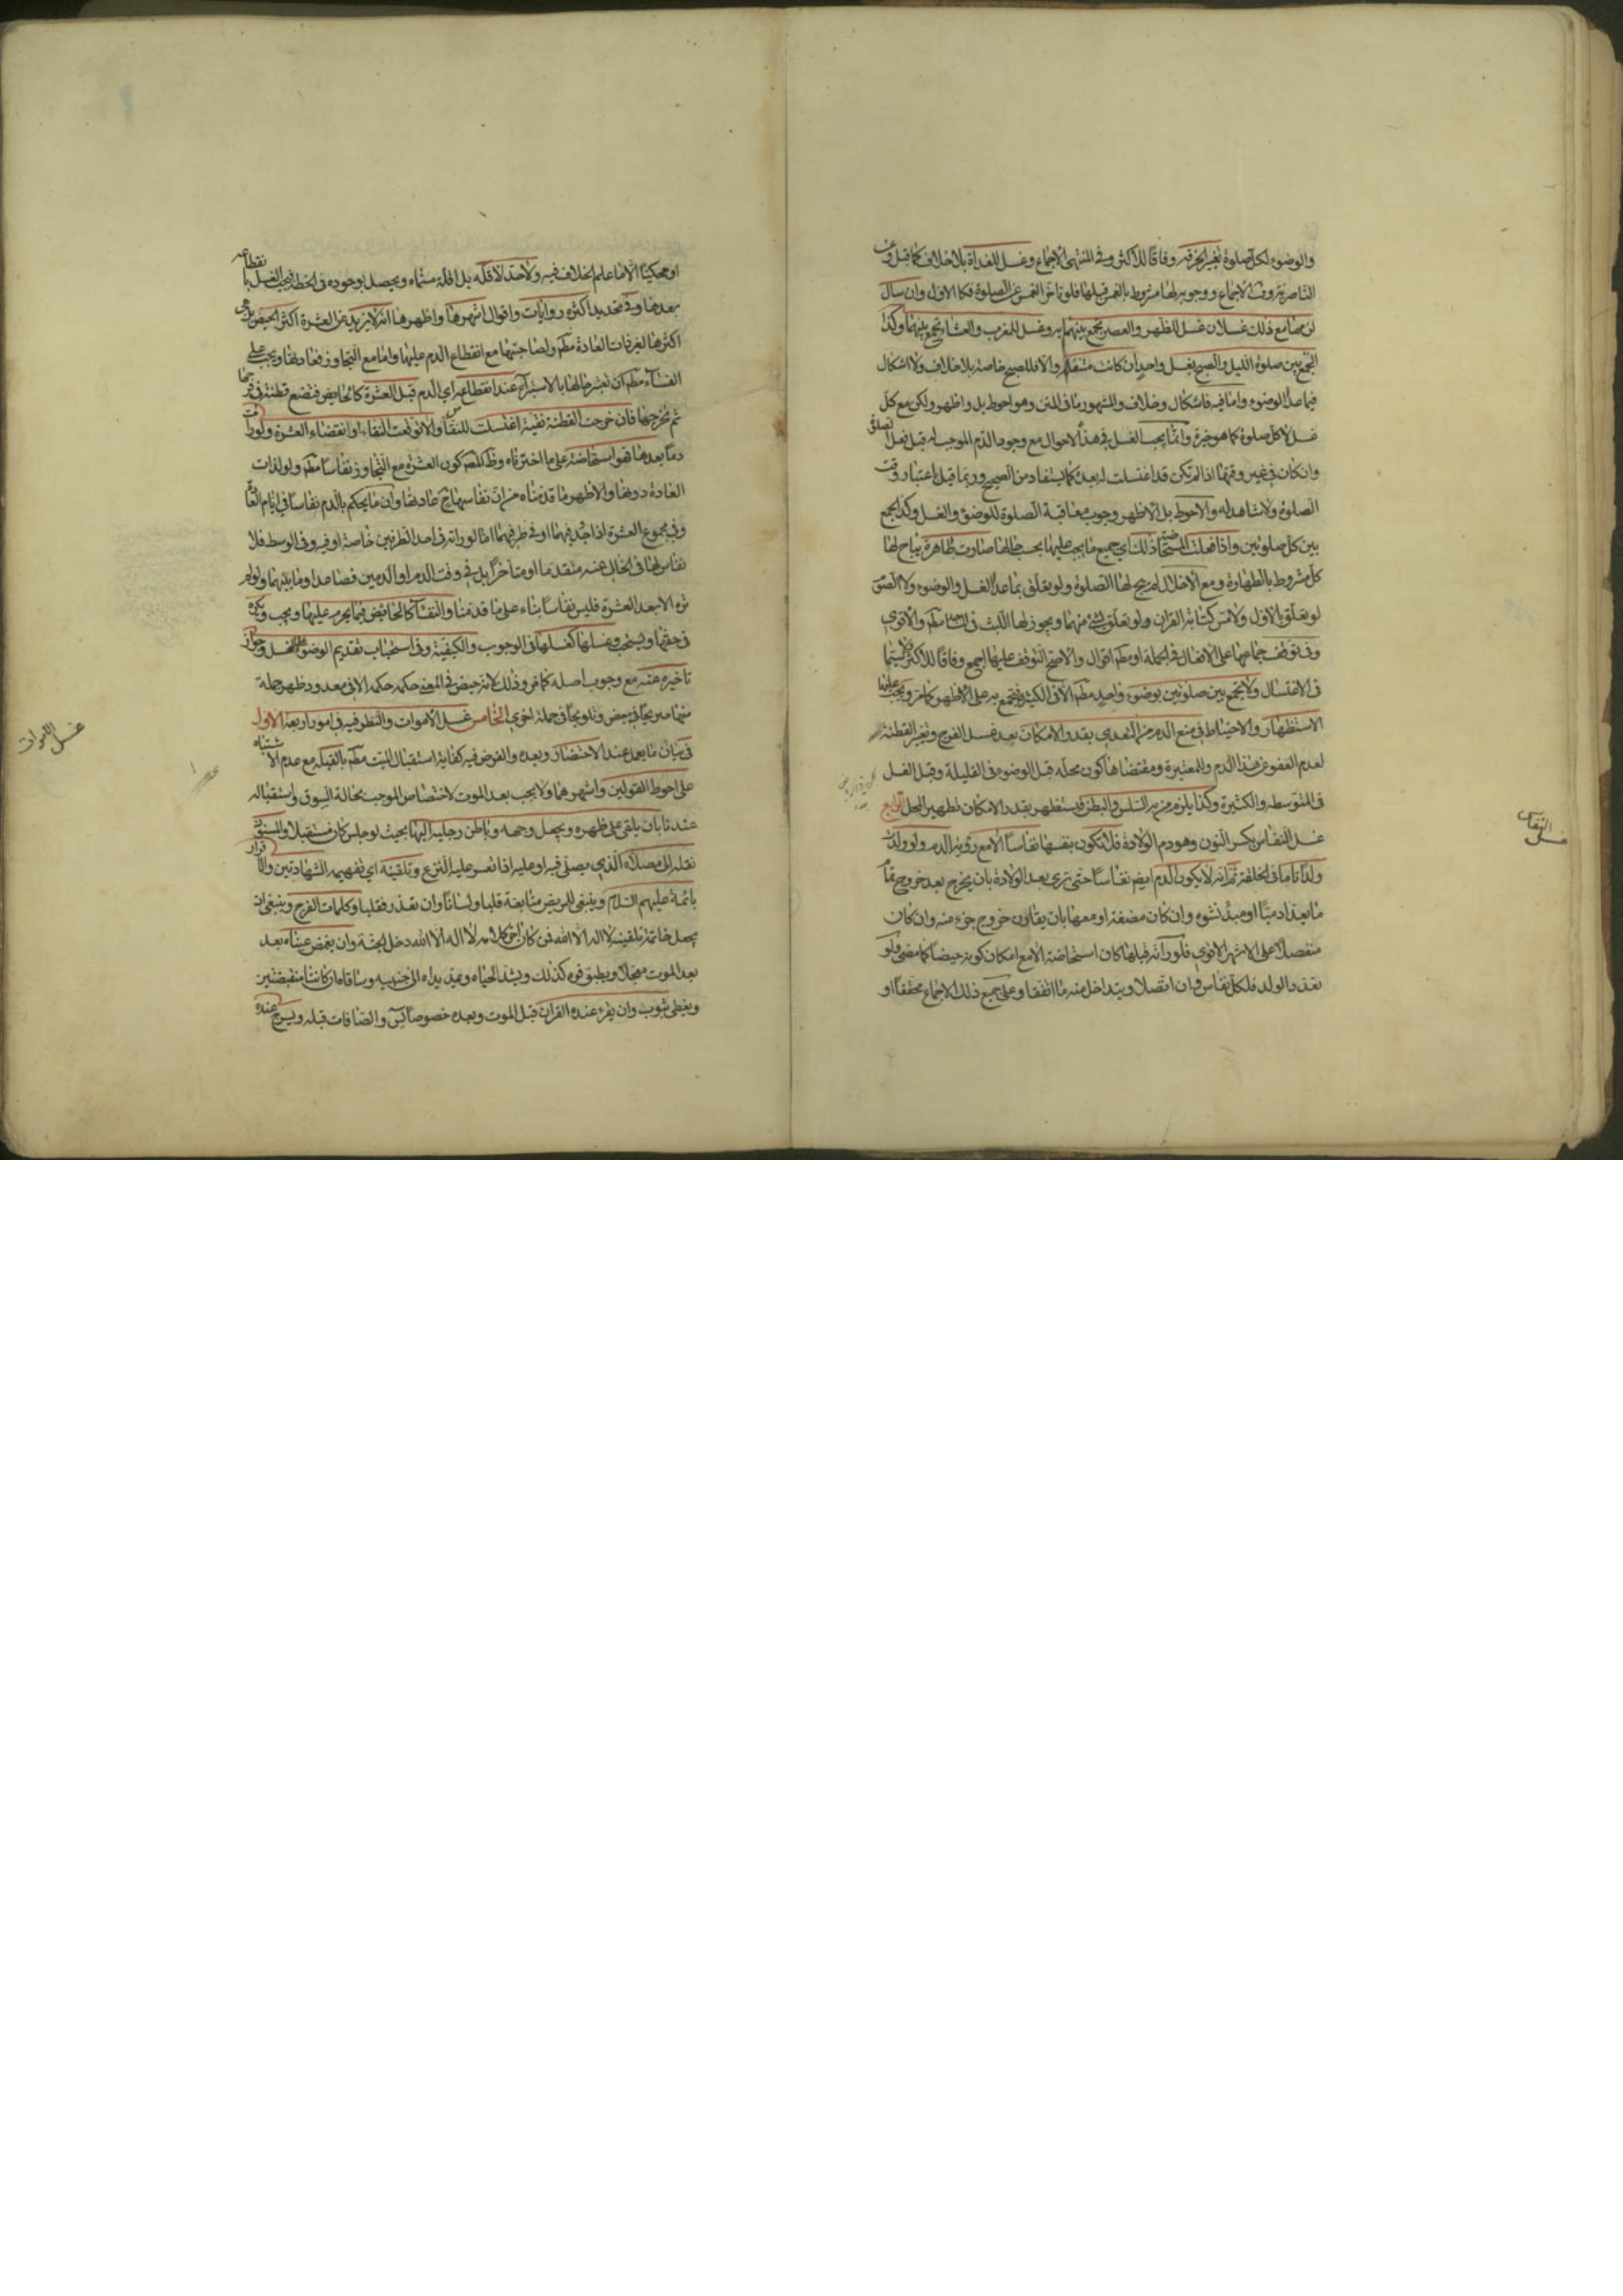 والوضوء لكل صلوة تغير الخرقة وفاقا للاكثر وفي المنتهى الاجماع وغسل للغداة بلا خلاف كما قيل وعن
الناصريتروث الاجماع ووجوبه لها مشروط بالغمس قبلها فلو تاخر الغمس عن الصلوة فكالاول وان سال
لزمها مع ذلك غسلان غسل للظهر والعصر تجمع بينهما به وغسل للمغرب والعشاء تجمع بينهما وكذا
الجمع بين صلوة الليل والصبح بغسل واحد ان كانت متنفلة والا فللصبح خاصة بلا خلاف ولا اشكال
فيما عدا الوضوء واما فيه فاشكال وخلاف والمشهور ما في المتن وهو احوط بل واظهر ولكن مع كل
غسل لا كل صلوة كما هو خيرة وانما يجب الغسل في هذه الاحوال مع وجود الدم الموجب له قبل فعل الصلوة
وان كان في غير وقتها اذا لم تكن قد اغتسلت له بعده كما يستفاد من الصحيح وربما قيل باعتبار وقت
الصلوة ولا شاهد له والاحوط بل الاظهر وجوب معاقبة الصلوة للوضوء والغسل وكذا الجمع
بين كل صلوتين واذا فعلت المستحاضة ذلك اي جميع ما يجب عليها بحسب حالها صارت طاهرة يباح لها
كل مشروط بالطهارة ومع الاخلال لم يصح لها الصلوة ولو تعلق بما عدا الغسل والوضوء ولا الصوم
لو تعلق بالاول ولا مس كتابة القران ولو تعلق بشئ منهما ويجوز لها اللبث في المساجد مطلقا والاقوى
وفي توقف جماعها على الافعال في الجملة او مطلقا اقوال والاصح التوقف عليها اجمع وفاقا للاكثر ولا سيما
في الاغتسال ولا تجمع بين صلوتين بوضوء واحد مطلقا الا في الكثيرة فتجمع به على الاظهر كما مر ويجب عليها
الاستظهار والاحتياط في منع الدم من التعدي بقدر الامكان بعد غسل الفرج وتغير القطنة
لعدم العفو عن هذا الدم والمعتبرة ومقتضاها كون محله قبل الوضوء في القليلة وقبل الغسل
في المتوسطة والكثيرة وكذا يلزم من به السلس والبطن فيستظهر بقدر الامكان تطهير المحل الرابع
غسل النفاس بكسر النون وهو دم الولادة فلا تكون بنفسها نفاسا الا مع رؤية الدم ولو ولدت
ولدا تاما في الخلقة ثم انه لا يكون الدم ايضا نفاسا حتى ترى بعد الولادة بان يخرج بعد خروج تمام
ما يعد ادميا او مبدء نشوه وان كان مضغة او معها بان يقارن خروج جزء منه وان كان
منفصلا على الاشهر الاقوى فلو رأته قبلها كان استحاضة الا مع امكان كونه حيضا كما مضى ولو
تعدد الولد فلكل نفاس وان اتصلا ويتداخل منه ما اتفقا وعلى جميع ذلك الاجماع محققا او
النفاس
غسل
او محكيا الا ما علم الخلاف فيه ولا حد لاقله بل اقله مسماه ويحصل بوجوده في لحظة فيجب الغسل بانقطاعه
بعدها وفي تحديد اكثره روايات واقوال اشهرها واظهرها انه لا يزيد عن العشرة اكثر الحيض بل هي
اكثرها لغير ذات العادة مطلقا ولصاحبتها مع انقطاع الدم عليها واما مع التجاوز فعادتها ويجب على
النفساء مطلقا ان تعتبر حالها بالاستبراء عند انقطاعه اي الدم قبل العشرة كالحايض فتضع قطنة في فرجها
ثم تخرجها فان خرجت القطنة نقية اغتسلت للنقاء والا توقعت النقاء او انقضاء العشرة ولو رأت
دما بعدها فهو استحاضة على ما اخترناه وظاهر المصنف كون العشرة مع التجاوز نفاسا مطلقا ولو لذات
العادة دونها والاظهر ما قدمناه من ان نفاسها ح عادتها وان ما يحكم بالدم نفاسا في ايام العادة
وفي مجموع العشرة اذا وجد فيهما او في طرفيهما اما لو راته في احد الطرفين خاصة او فيه وفي الوسط فلا
نفاس لها في الخالي عنه متقدما او متاخرا بل في وقت الدم او الدمين فصاعدا وما بينهما ولو لم
تره الا بعد العشرة فليس نفاسا بناء على ما قدمنا والنفساء كالحايض فيما يحرم عليها ويجب ويكره
في حقها ويستحب وغسلها كغسلها في الوجوب والكيفية وفي استحباب تقديم الوضوء على الغسل وجواز
تاخيره عنه مع وجوب اصله كما مر وذلك لانه حيض في المعنى حكمه حكمه الا في معدود ظهر جملة
منها صريحا في بعض وتلويحا في جملة اخرى الخامس غسل الاموات والنظر فيه في امور اربعة الاول
في بيان ما يعمل عند الاحتضار وبعده والفرض فيه كفاية استقبال الميت مطلقا بالقبلة مع عدم الاشتباه
على احوط القولين واشهرهما ولا يجب بعد الموت لاختصاص الموجب بحالة السوق واستقباله
عندنا بان يلقى على ظهره ويجعل وجهه وباطن رجليه اليها بحيث لو جلس كان مستقبلا والمسنون
نقله الى مصلاه الذي يصلي فيه او عليه اذا تعسر عليه النزع وتلقينه اي تفهيمه الشهادتين والاقرار
بائمة عليهم السلام وينبغي للمريض متابعة قلبا ولسانا وان تعذر فقلبا وكلمات الفرج وينبغي ان
يجعل خاتمة تلقينه لا اله الا الله فمن كان اخر كلامه لا اله الا الله دخل الجنة وان يغمض عيناه بعد
بعد الموت معجلا ويطبق فوه كذلك ويشد لحياه ويمد يداه الى جنبيه وساقاه ان كانتا منقبضتين
ويغطى بثوب وان يقرء عنده القران قبل الموت وبعده خصوصا يس والصافات قبله ويسرج عنده
غسل الاموات